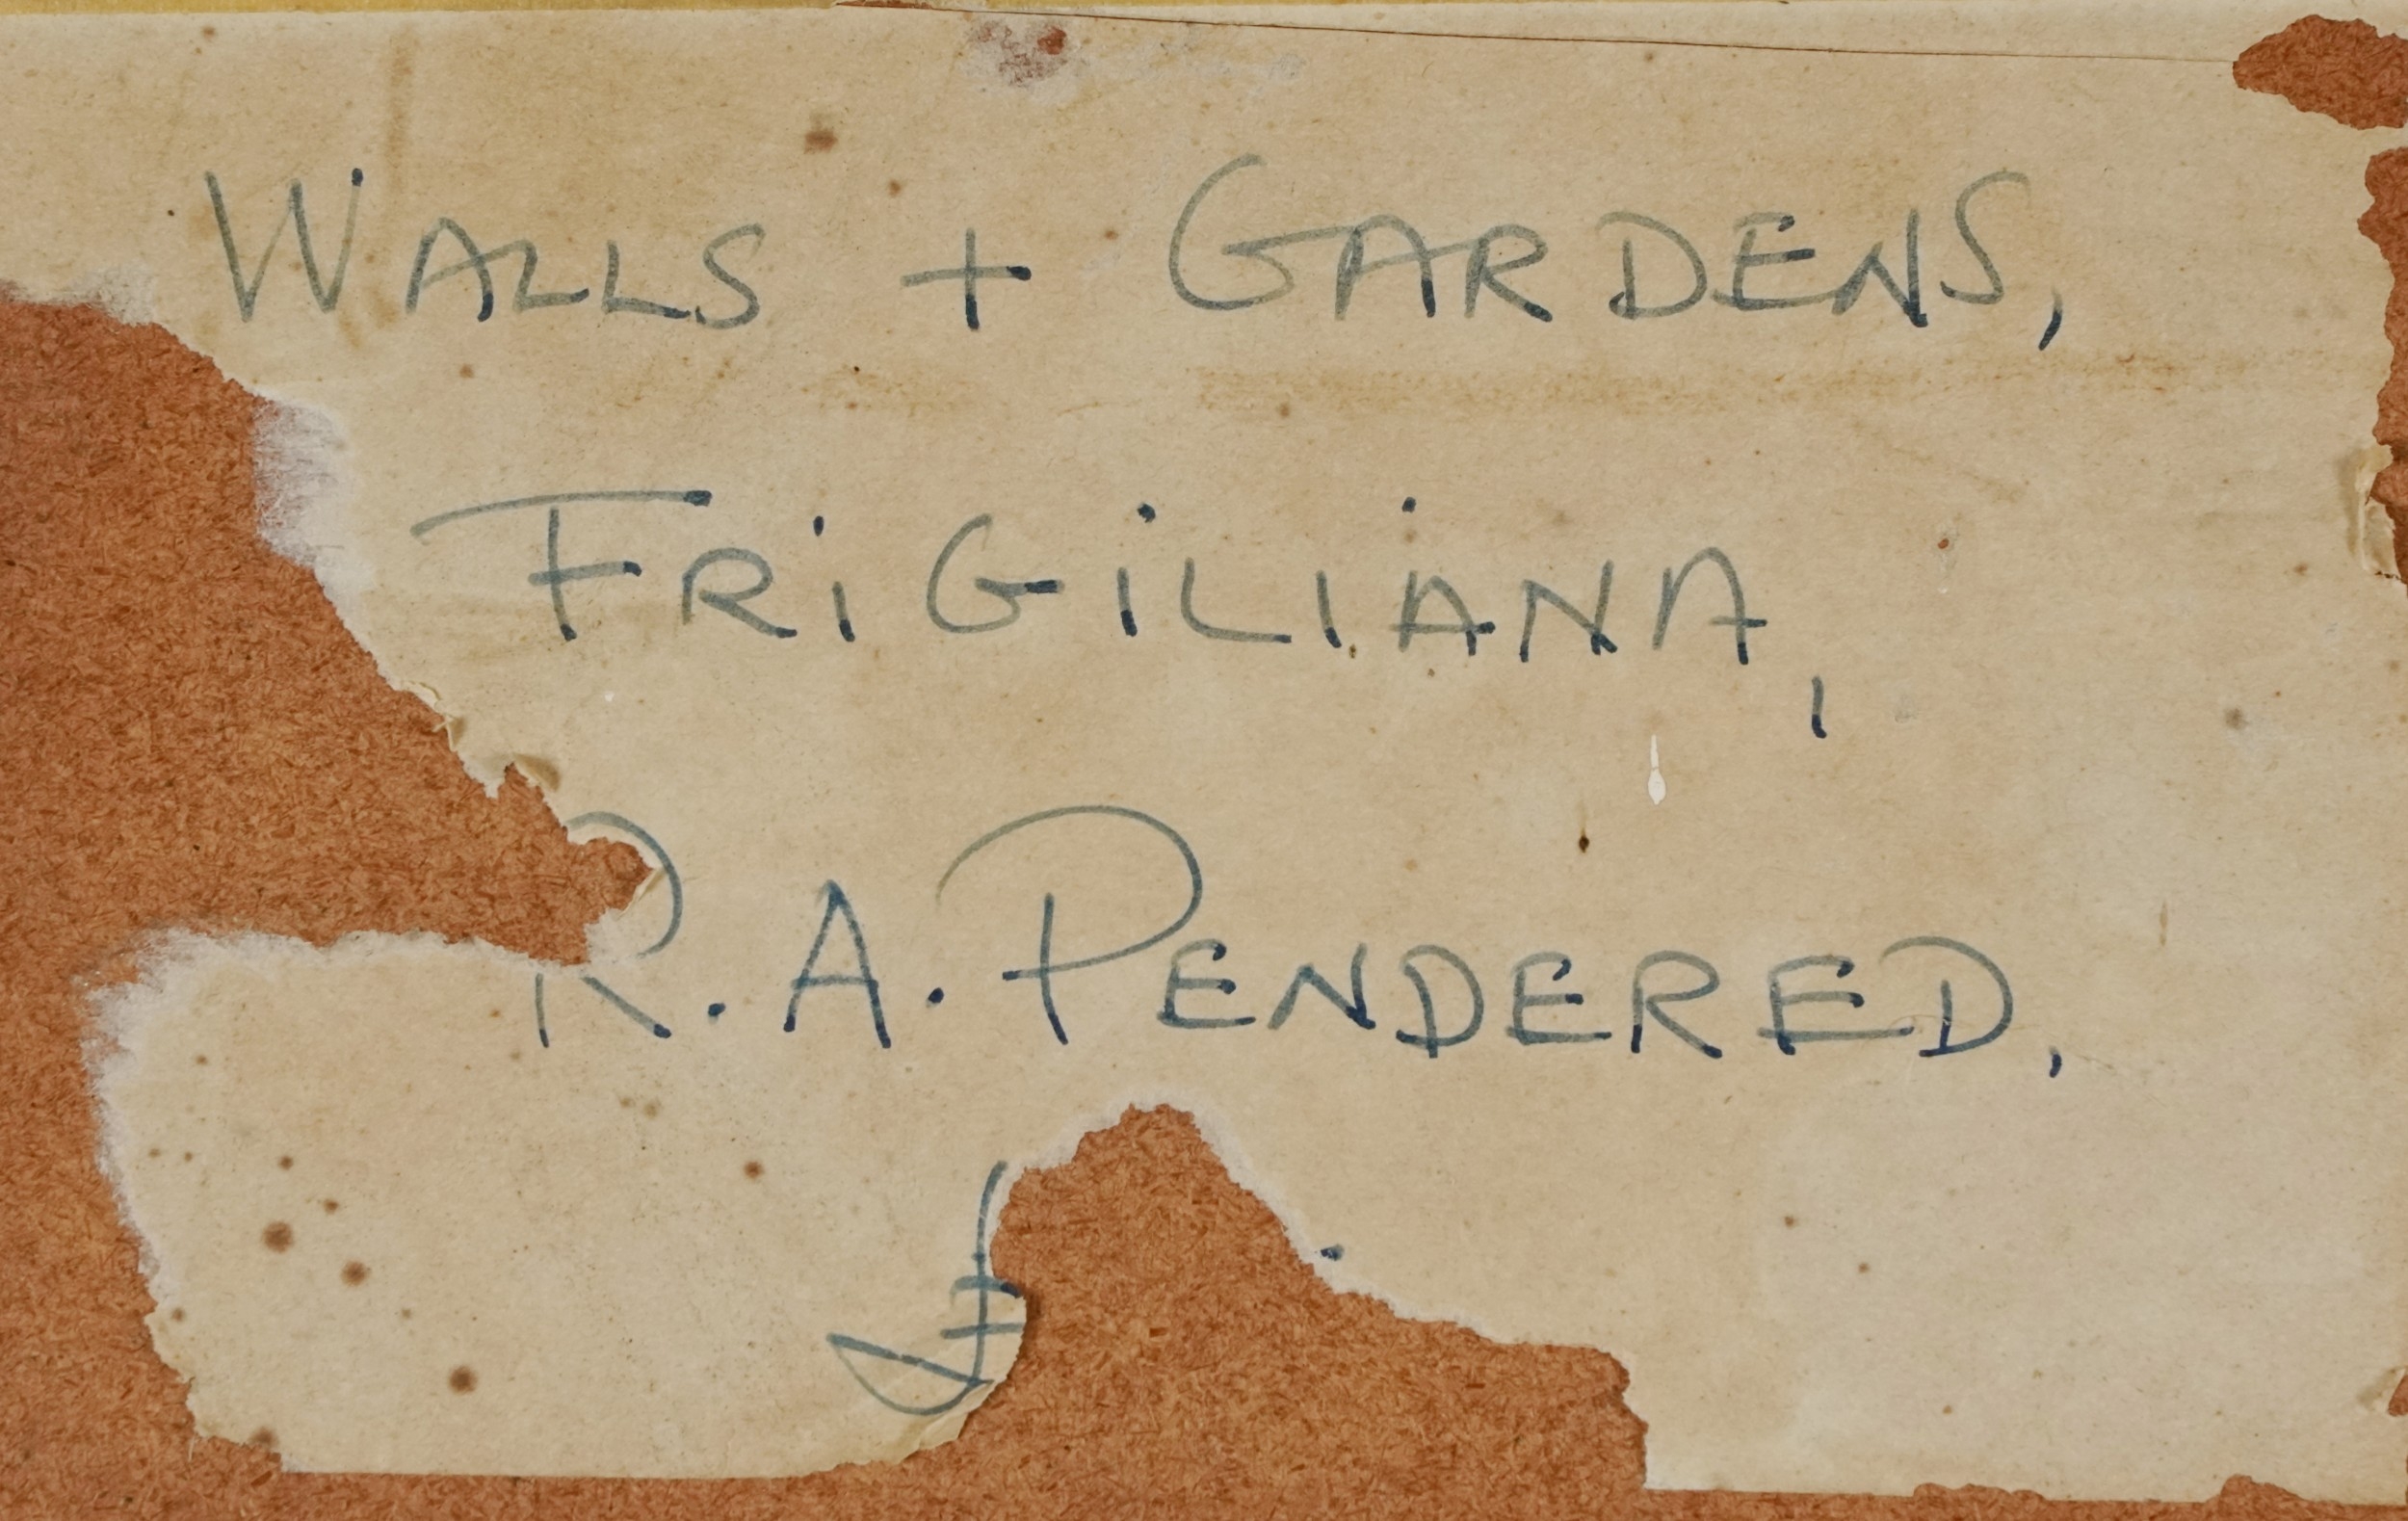 WALLS + GARDENS,
FRiGiLiANA,
R.A. PENDERED,